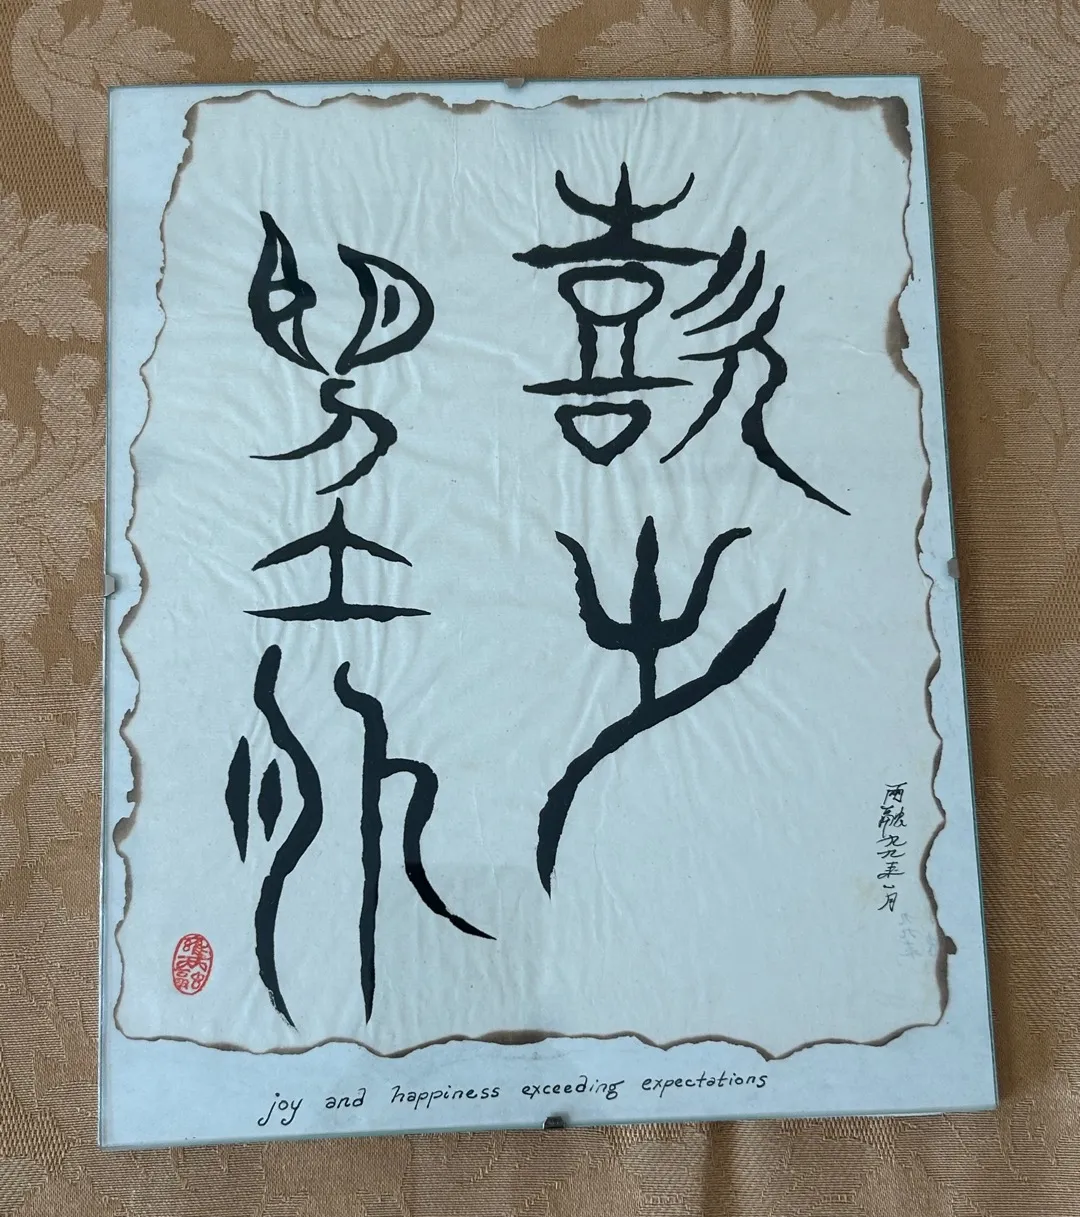 歖出
朢外
九九年
joy and happiness exceeding expectations